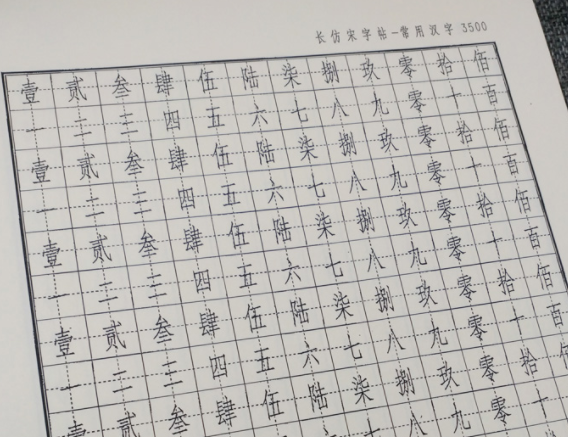 长仿宋字帖-常用汉字 3500
壹贰叁肆伍陆柒捌玖零拾佰
一二三四五六七八九零十百
壹贰叁肆伍陆柒捌玖零拾佰
一二三四五六七八九零十百
壹贰叁肆伍陆柒捌玖零拾佰
一二三四五六七八九零十百
壹贰叁肆伍陆柒捌玖零拾佰
一二三四五六七八九零十百
壹贰叁肆伍陆柒捌玖零拾
七八九零十